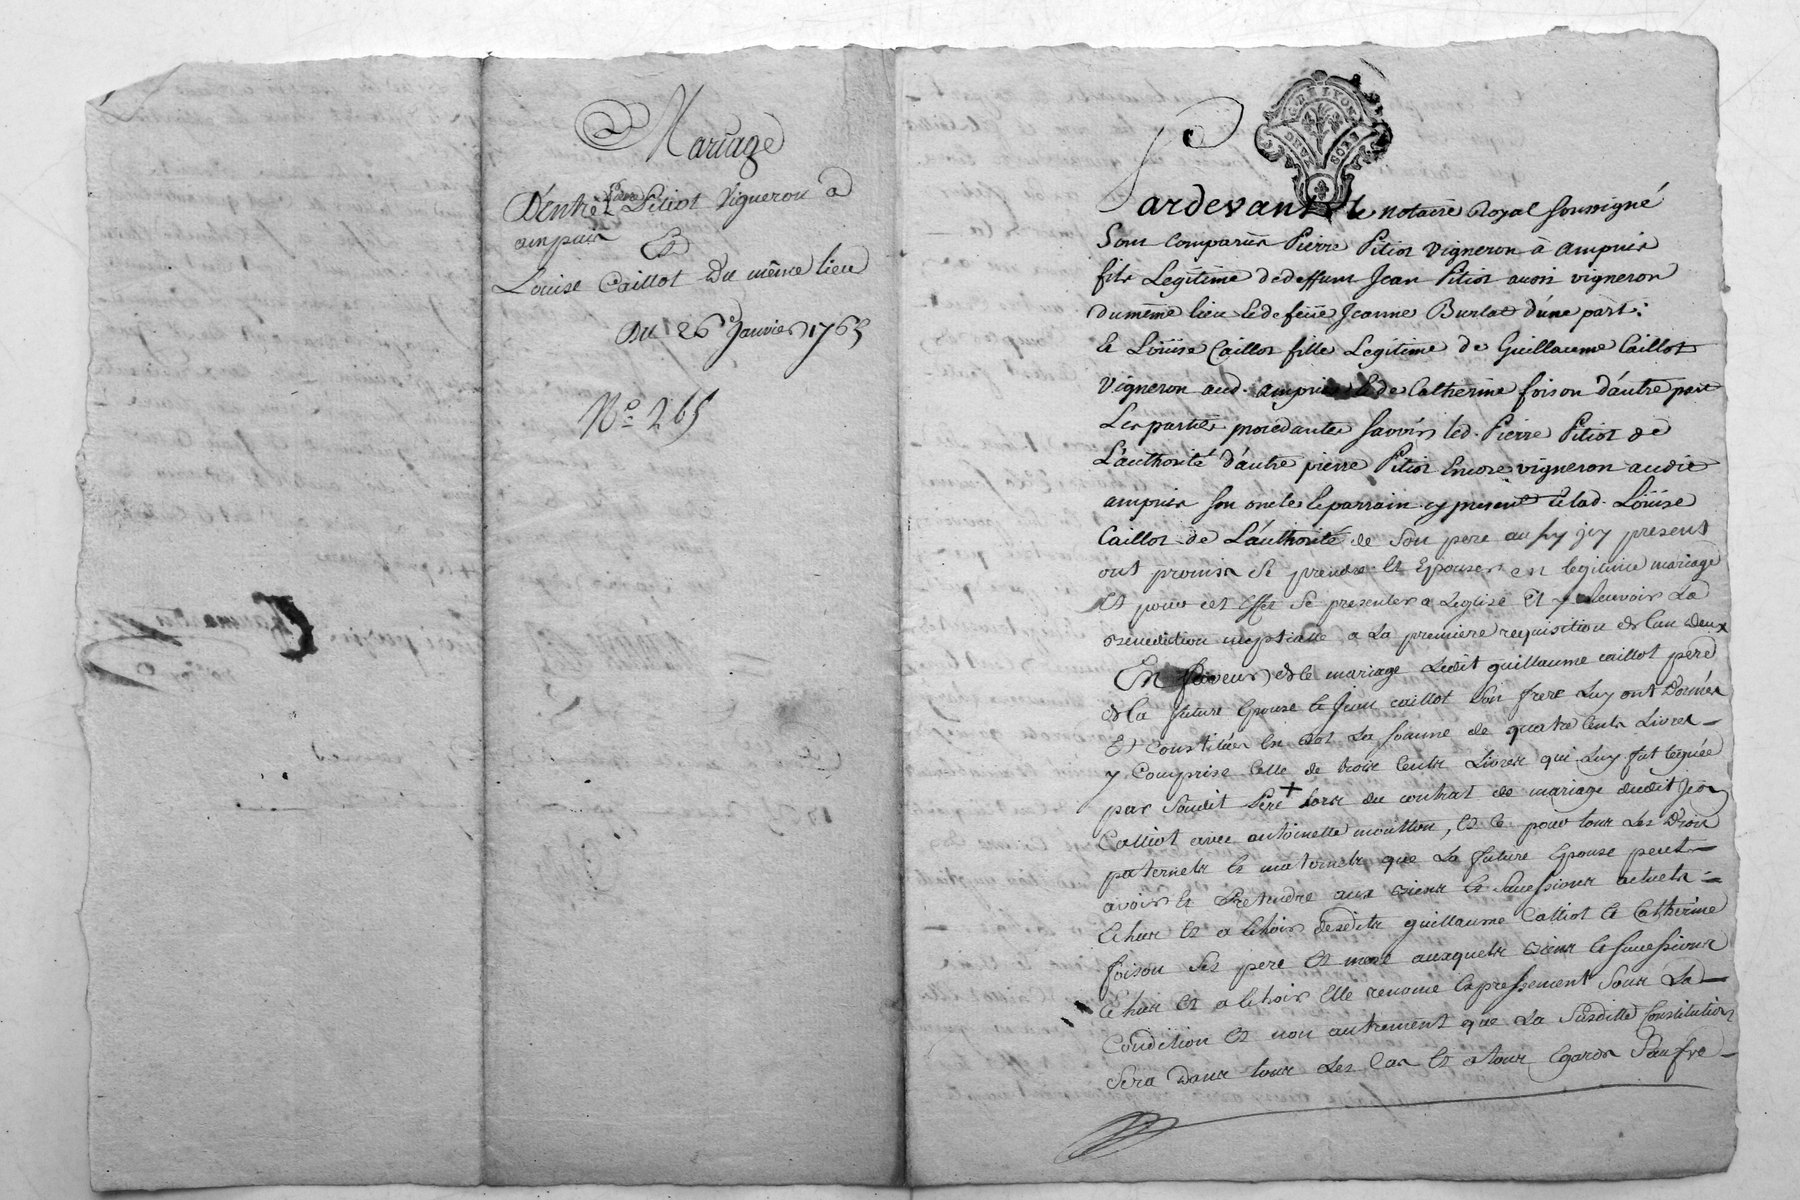 Mariage
D'entre Pierre Pitiot Vigneron a
ampuis Et
Louise Caillot Du même lieu
Du 26e Janvier 1765
No. 265
G. DE LYON
DEUX SOLS
Pardevant le notaire Royal soussigné
Sont comparus Pierre Pitiot vigneron à ampuis
fils Legitime de deffunt Jean Pitiot aussi vigneron
du même lieu & de feüe Jeanne Burlat d'une part;
& Loüise Caillot fille Legitime de Guillaume Caillot
Vigneron aud. ampuis & de Catherine foison d'autre part
Les parties procedantes savoir led. Pierre Pitiot de
L'authorité d'autre pierre Pitiot Encore vigneron audit
ampuis son oncle & parrain cy present & lad. Loüise
Caillot de L'authorité de son pere aussy icy present
ont promis se prendre et Epouser en legitime mariage
et pour cet effet se presenter a Leglise et y recevoir La
Benediction nuptialle a La premiere requisition de Lun deux
En faveur de ce mariage Ledit guillaume caillot pere
de La future Epouse & Jean caillot son frere Luy ont Donnés
Et Constitués En dot La somme de quatre Cents Livres
y Comprise Celle de trois Cents Livres qui Luy fut leguée
par Sondit Pere + Lors du contrat de mariage dudit Jean
Calliot avec antoinette moutton, et ce pour tous Les Droits
paternels et maternels que La future Epouse peut
avoir et Pretendre aux Biens et Successions actuels
Echus et a Echoir desdits guillaume Calliot et Catherine
foison Ses pere et mere auxquels Biens et successions
Echus et a Echoir Elle renonce Expressement Sous La
Condition et non autrement que La Susditte Constitution
Sera Dans tous Les Cas et a tous Egards Sauf re